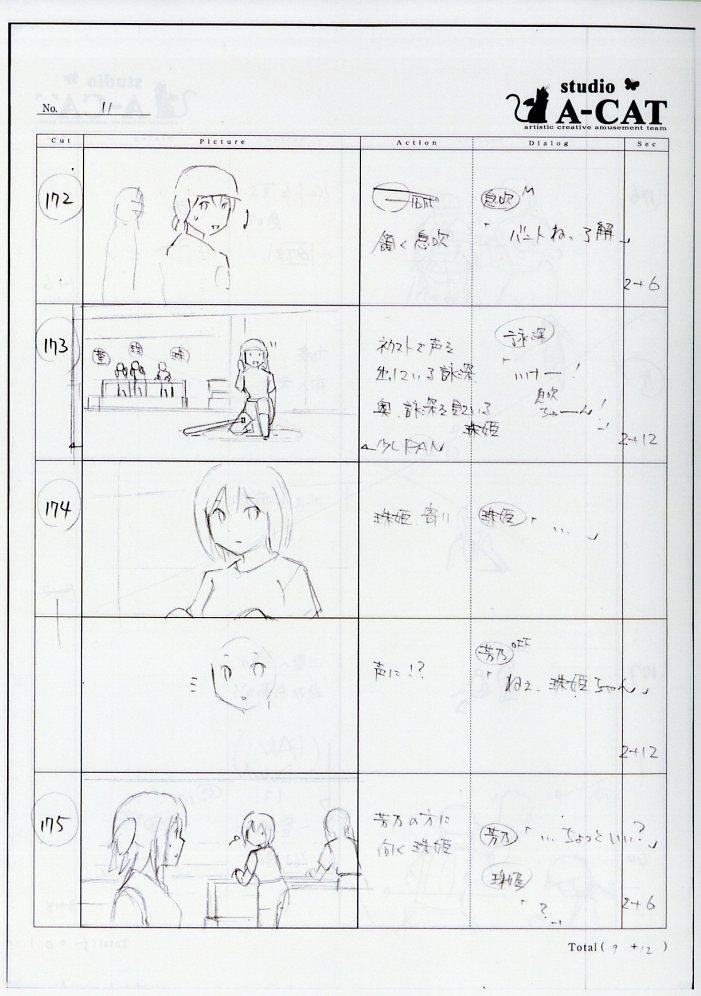 No. 11
studio
A-CAT
artistic creative amusement team
Cut Picture Action Dialog Sec
172
頷く息吹
息吹 M
「バントねっ了解」
2+6
173
芳
珠
ネクストで声を
出している詠深
奥、詠深を見ている
珠姫
少しPAN
詠深
「いけー!
息吹
ちゃーん!」
2+12
174
珠姫 寄り
珠姫「…」
声に!?
芳乃 OFF
「ねえ、珠姫ちゃん」
2+12
175
芳乃の方に
向く珠姫
芳乃「…ちょっといい?」
珠姫
「?」
2+6
Total( 9 +12 )